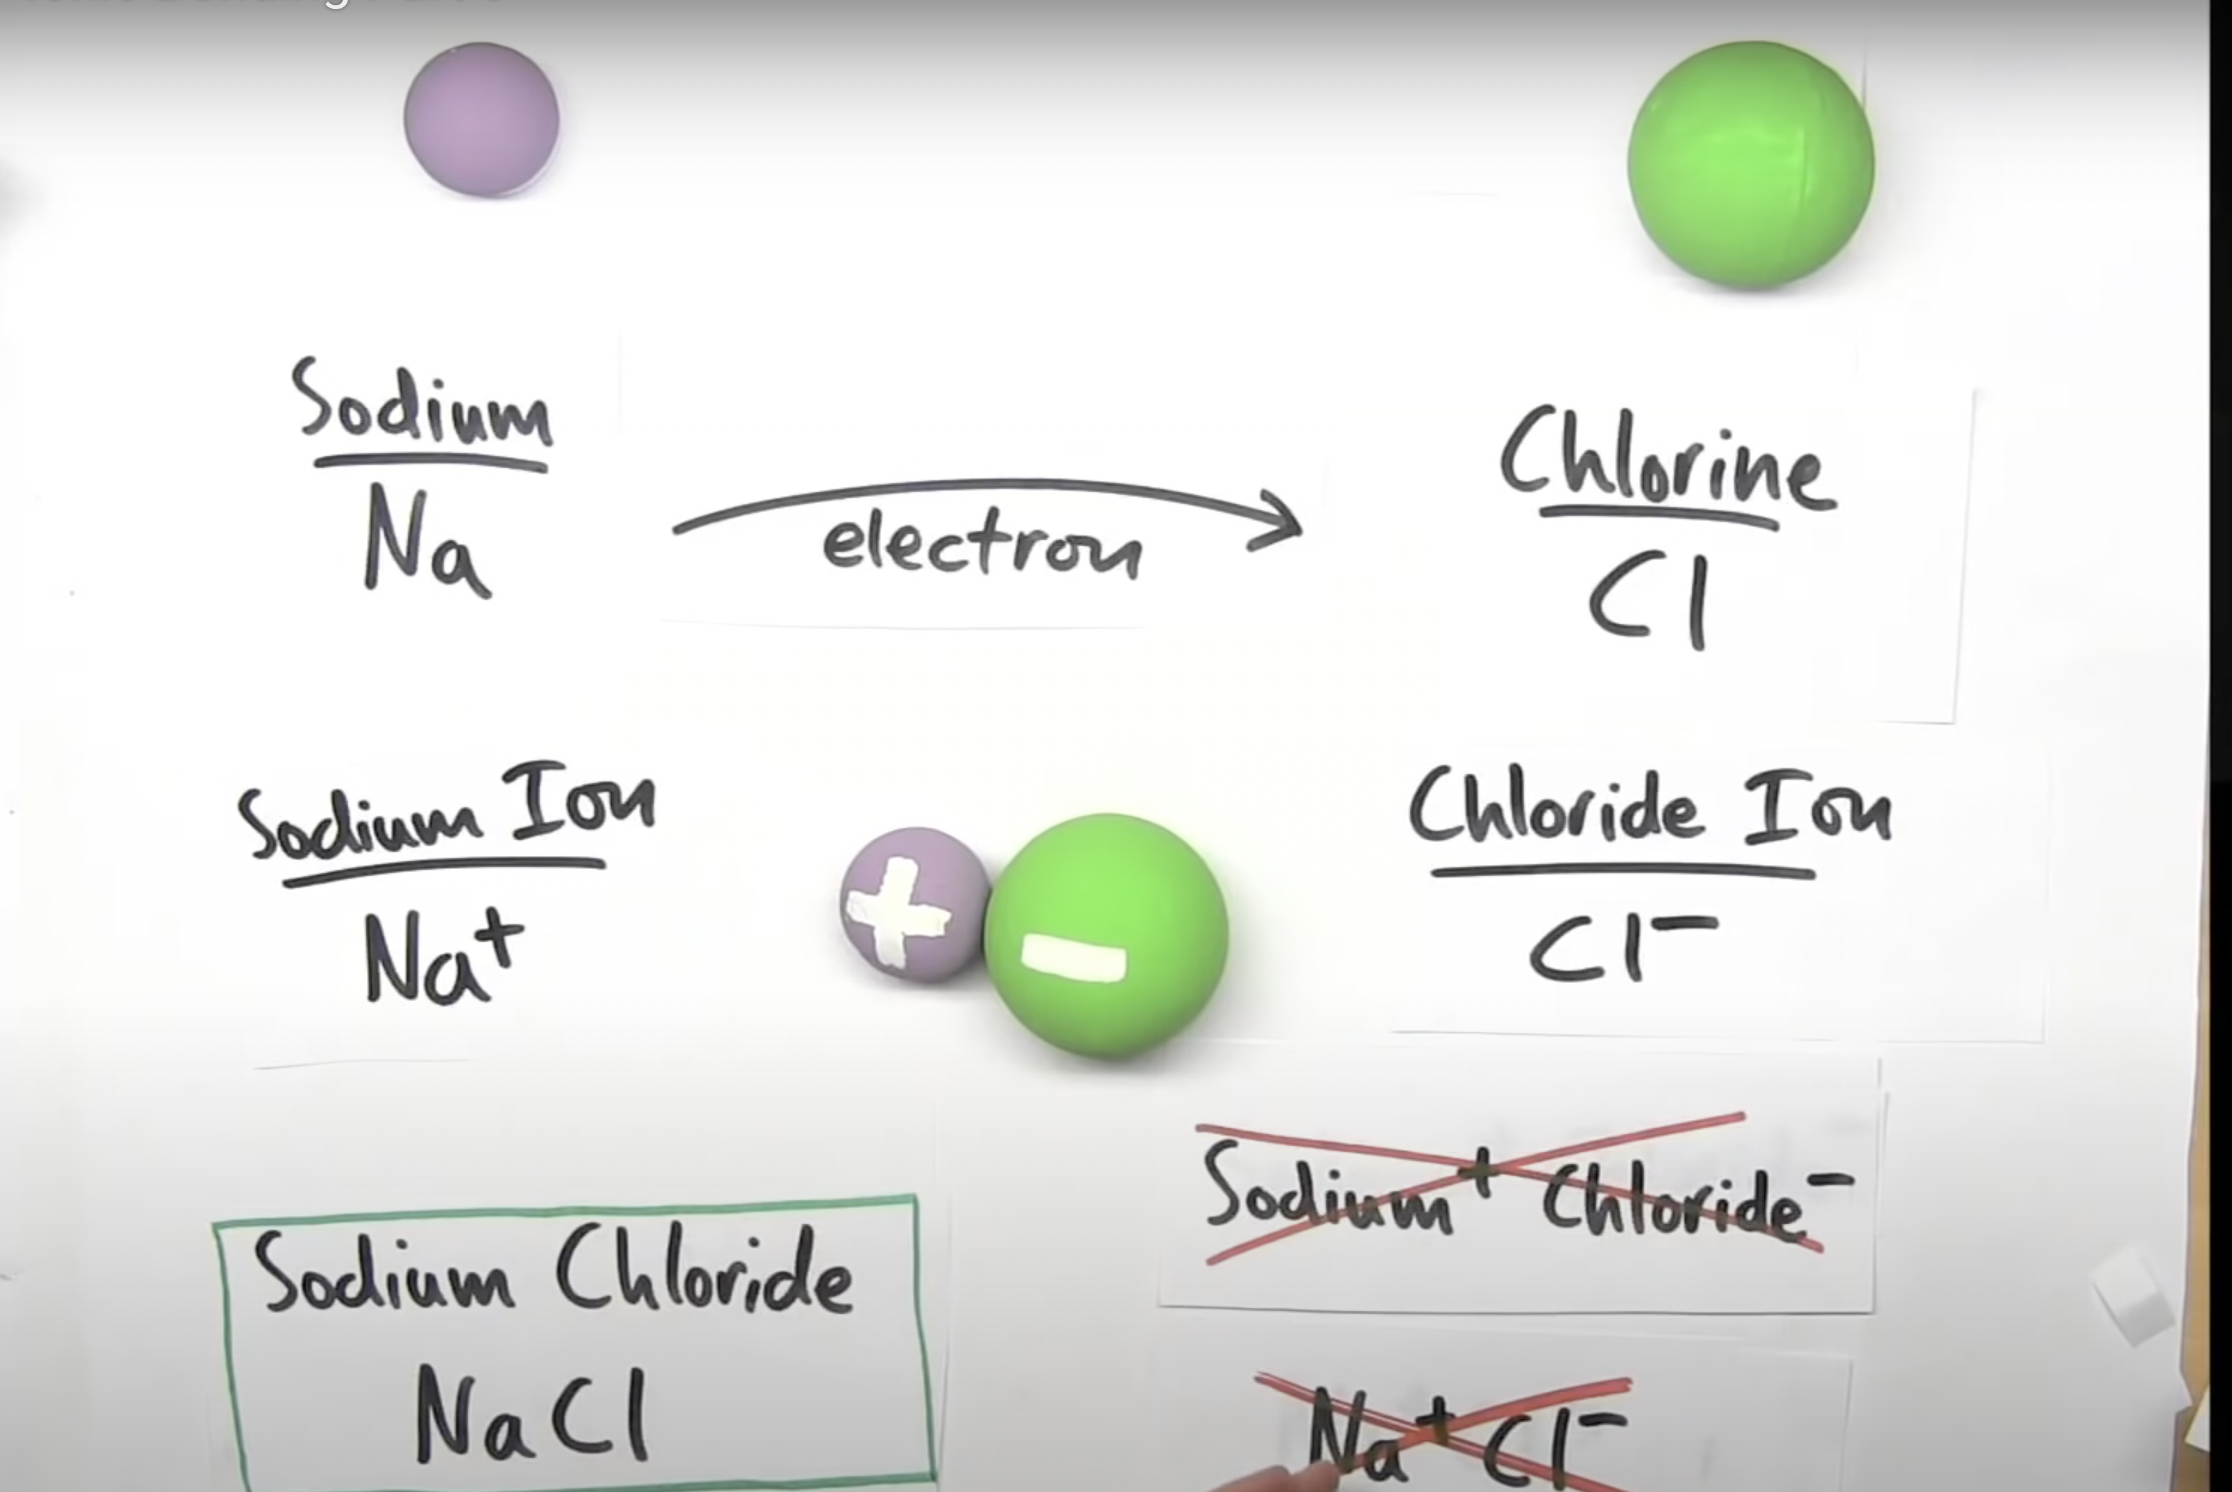 Sodium
Na
electron
Chlorine
Cl
Sodium Ion
Na⁺
+
−
Chloride Ion
Cl⁻
Sodium Chloride
NaCl
Sodium⁺ Chloride⁻
Na⁺Cl⁻